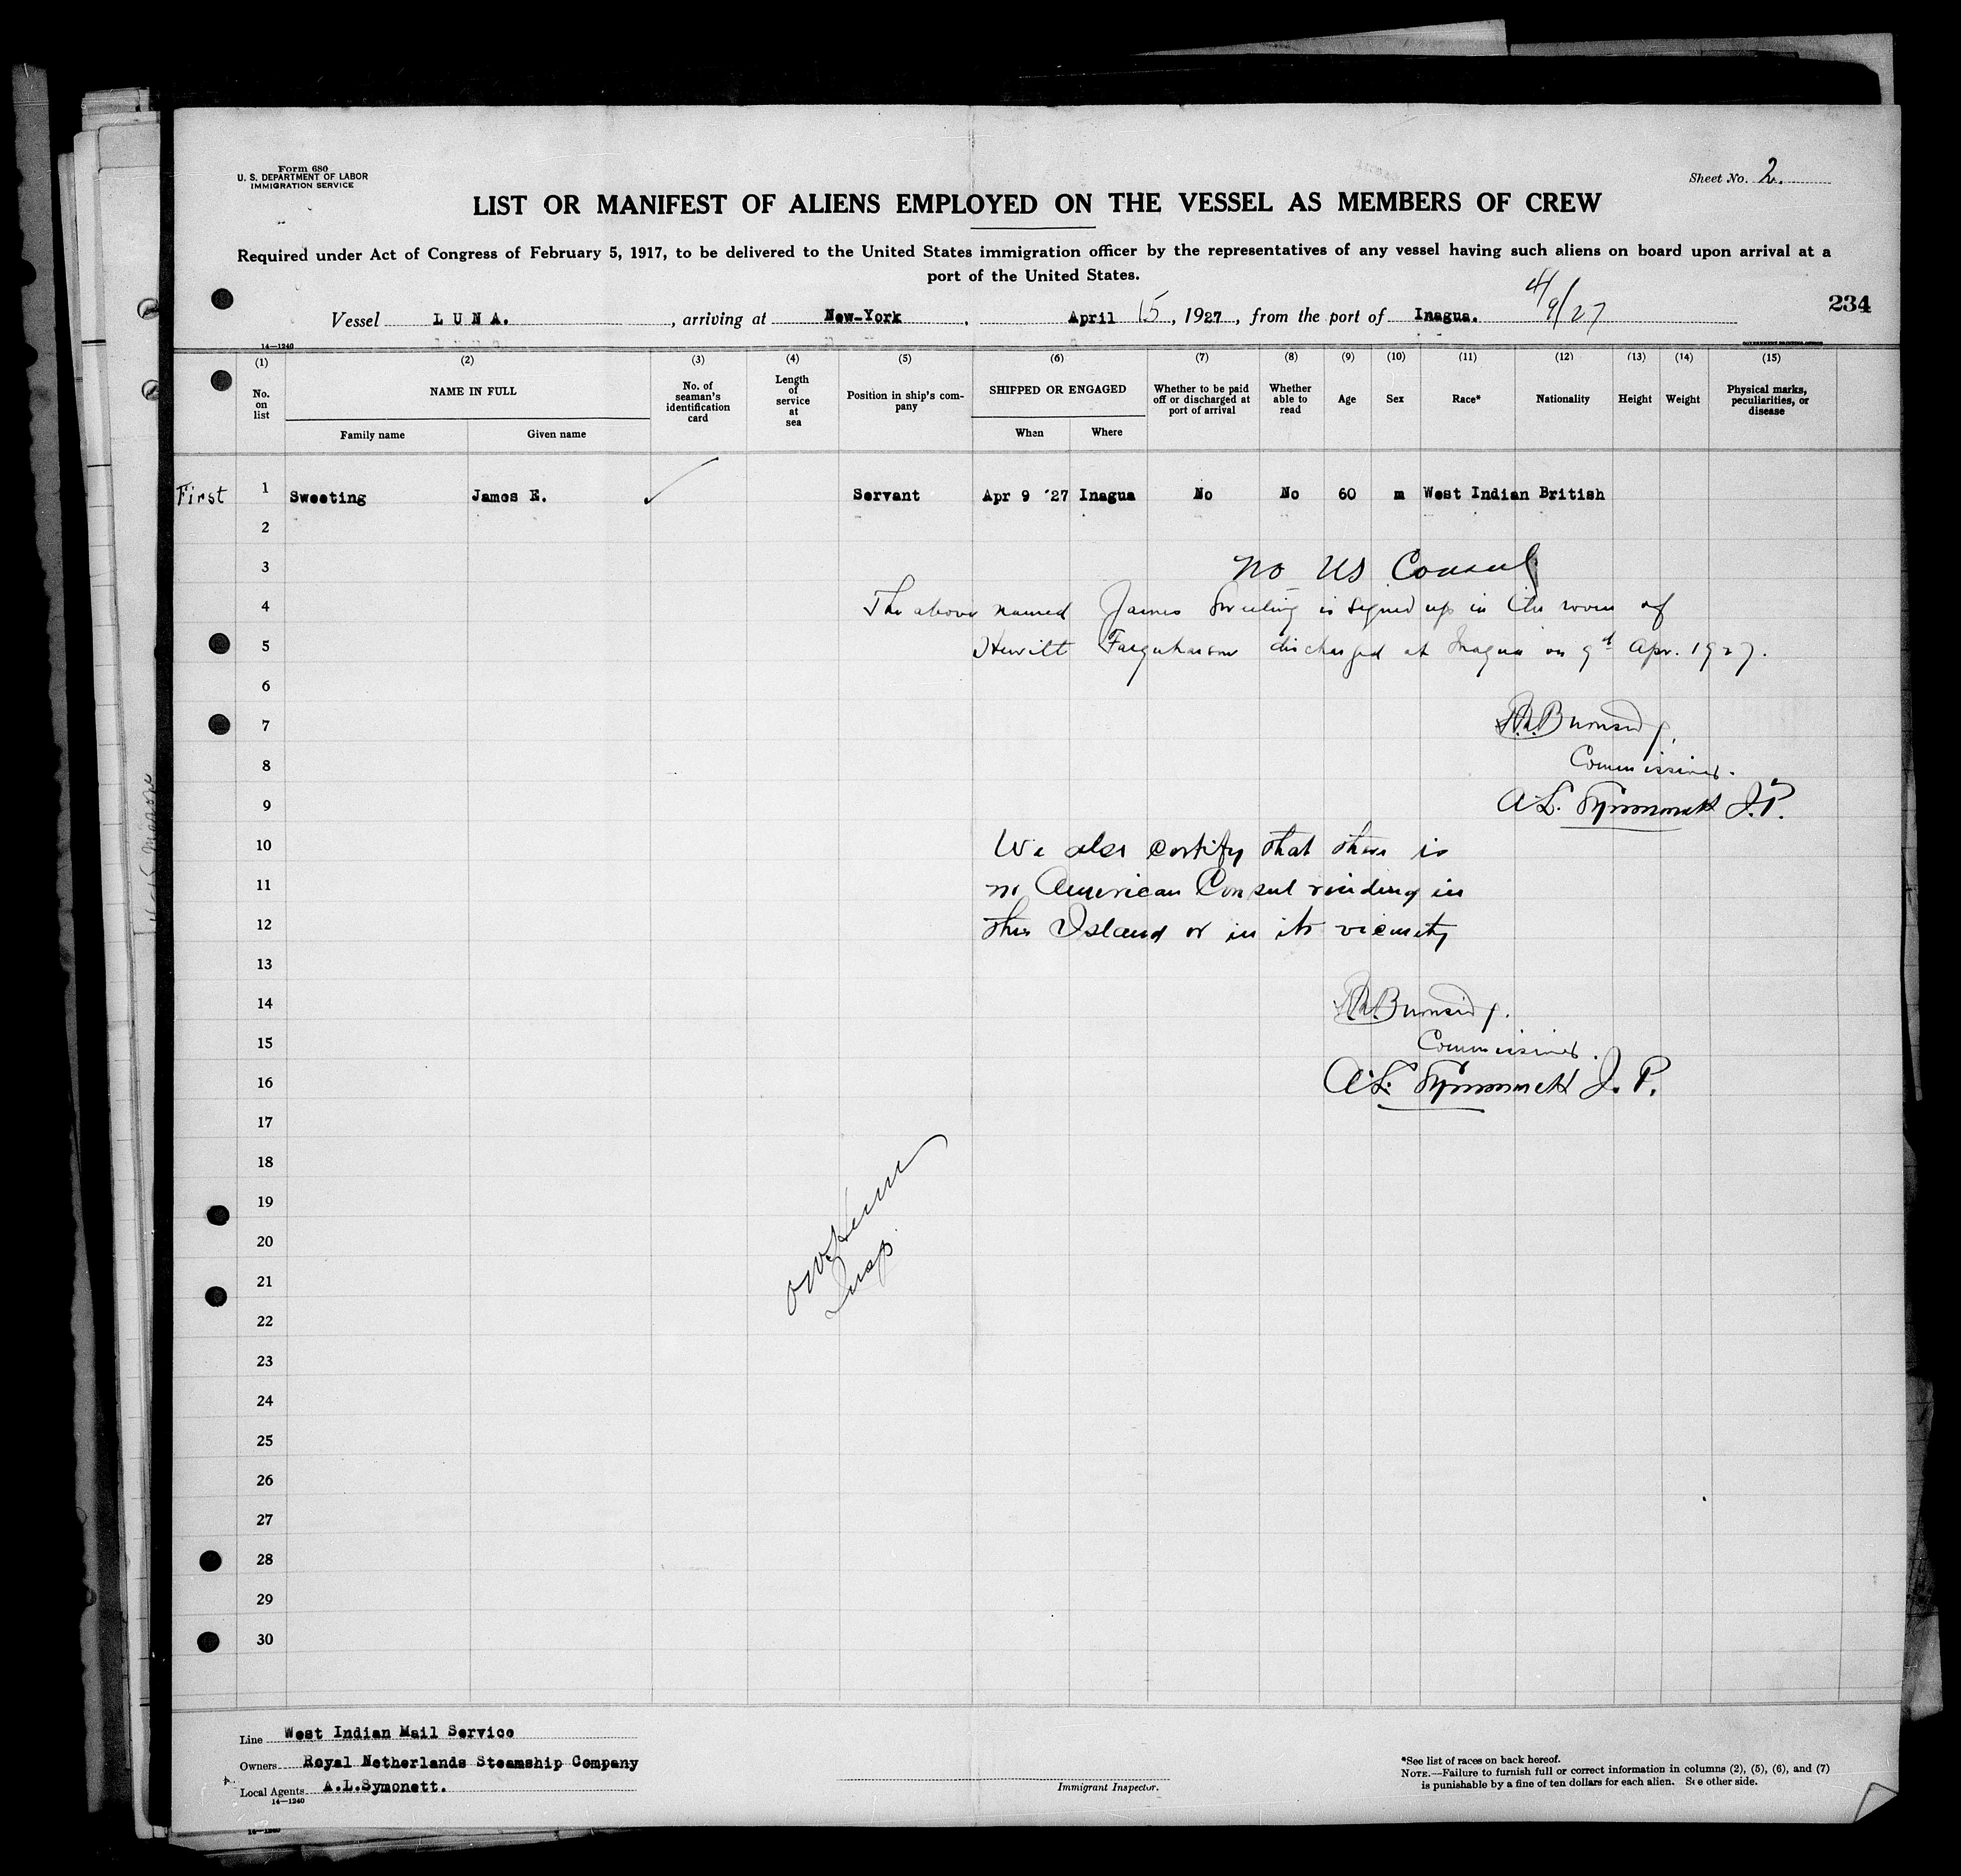 Form 680
U. S. DEPARTMENT OF LABOR
IMMIGRATION SERVICE
Sheet No. 2.
LIST OR MANIFEST OF ALIENS EMPLOYED ON THE VESSEL AS MEMBERS OF CREW
Required under Act of Congress of February 5, 1917, to be delivered to the United States immigration officer by the representatives of any vessel having such aliens on board upon arrival at a
port of the United States.
4/9/27
234
Vessel LUNA., arriving at New-York, April 15, 1927, from the port of Inagua.
14—1240
GOVERNMENT PRINTING OFFICE
(1) (2) (3) (4) (5) (6) (7) (8) (9) (10) (11) (12) (13) (14) (15)
No. on list
NAME IN FULL
Family name Given name
No. of seaman's identification card
Length of service at sea
Position in ship's company
SHIPPED OR ENGAGED
When Where
Whether to be paid off or discharged at port of arrival
Whether able to read
Age
Sex
Race*
Nationality
Height
Weight
Physical marks, peculiarities, or disease
First 1 Sweeting James E. Servant Apr 9 '27 Inagua No No 60 m West Indian British
2
3 No US Consul
4 The above named James Sweeting is signed up in the room of
5 Hewitt Farquharson discharged at Inagua on 9th Apr. 1927.
6
7 Burnside,
8 Commissioner.
9 A.L. Symonett J.P.
10 We also certify that there is
11 no American Consul residing in
12 this Island or in its vicinity
13
14 Burnside.
15 Commissioner.
16 A.L. Symonett J.P.
17
18
19
20
21 Insp
22
23
24
25
26
27
28
29
30
Line West Indian Mail Service
Owners Royal Netherlands Steamship Company
Local Agents A.L.Symonett.
14—1240
Immigrant Inspector.
*See list of races on back hereof.
NOTE.—Failure to furnish full or correct information in columns (2), (5), (6), and (7)
is punishable by a fine of ten dollars for each alien. See other side.
14—1240